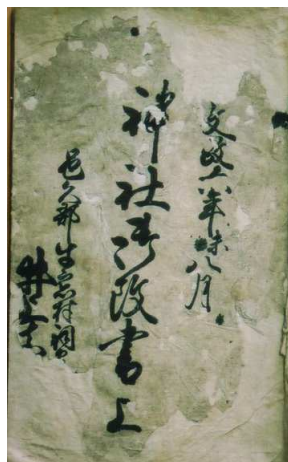 文政六年未八月
神社御改書上
邑久郡牛窓村